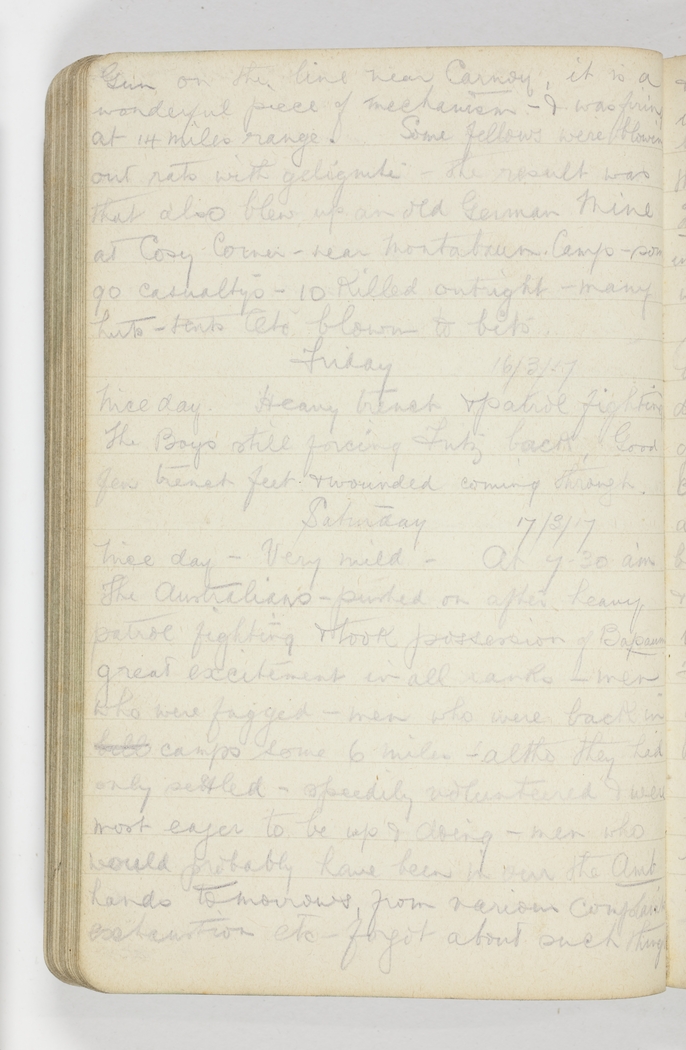 Gun on the line near Carnoy, it is a
wonderful piece of mechanism - & was firing
at 14 miles range. Some fellows were blowing
out rats with gelignite - the result was
that also blew up an old German Mine
at Cosy Corner - near Montabaum. Camp - som
90 casualty's - 10 Killed outright - many
huts - tents etc blown to bits.
Friday 16/3/17
Nice day. Heavy trench & patrol fighting
The Boys still forcing Fritz back, Good
few trench feet & wounded coming through.
Saturday 17/3/17
Nice day - Very mild - At 7.30 am
the Australians - pushed on after heavy
patrol fighting & took possession of Bapaum
great excitement in all ranks - men
who were fagged - men who were back in
camps some 6 miles - altho they had
only settled - speedily volunteered & were
most eager to be up & doing - men who
would probably have been in the Amb
hands tomorrow, from various complaints
exhaustion etc - forgot about such things